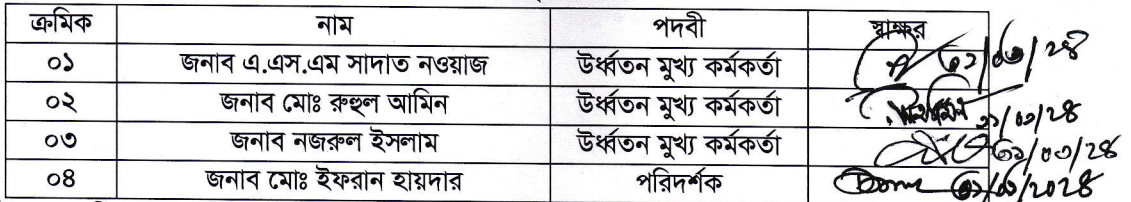 ক্রমিক নাম পদবী স্বাক্ষর
০১ জনাব এ.এস.এম সাদাত নওয়াজ উর্ধ্বতন মুখ্য কর্মকর্তা
০২ জনাব মোঃ রুহুল আমিন উর্ধ্বতন মুখ্য কর্মকর্তা
০৩ জনাব নজরুল ইসলাম উর্ধ্বতন মুখ্য কর্মকর্তা
০৪ জনাব মোঃ ইফরান হায়দার পরিদর্শক